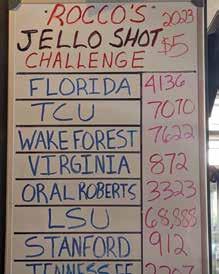 ROCCO'S 2023
JELLO SHOT $5
CHALLENGE
FLORIDA 4136
TCU 7070
WAKE FOREST 7622
VIRGINIA 872
ORAL ROBERTS 3323
LSU 68,888
STANFORD 912
TENNESSEE